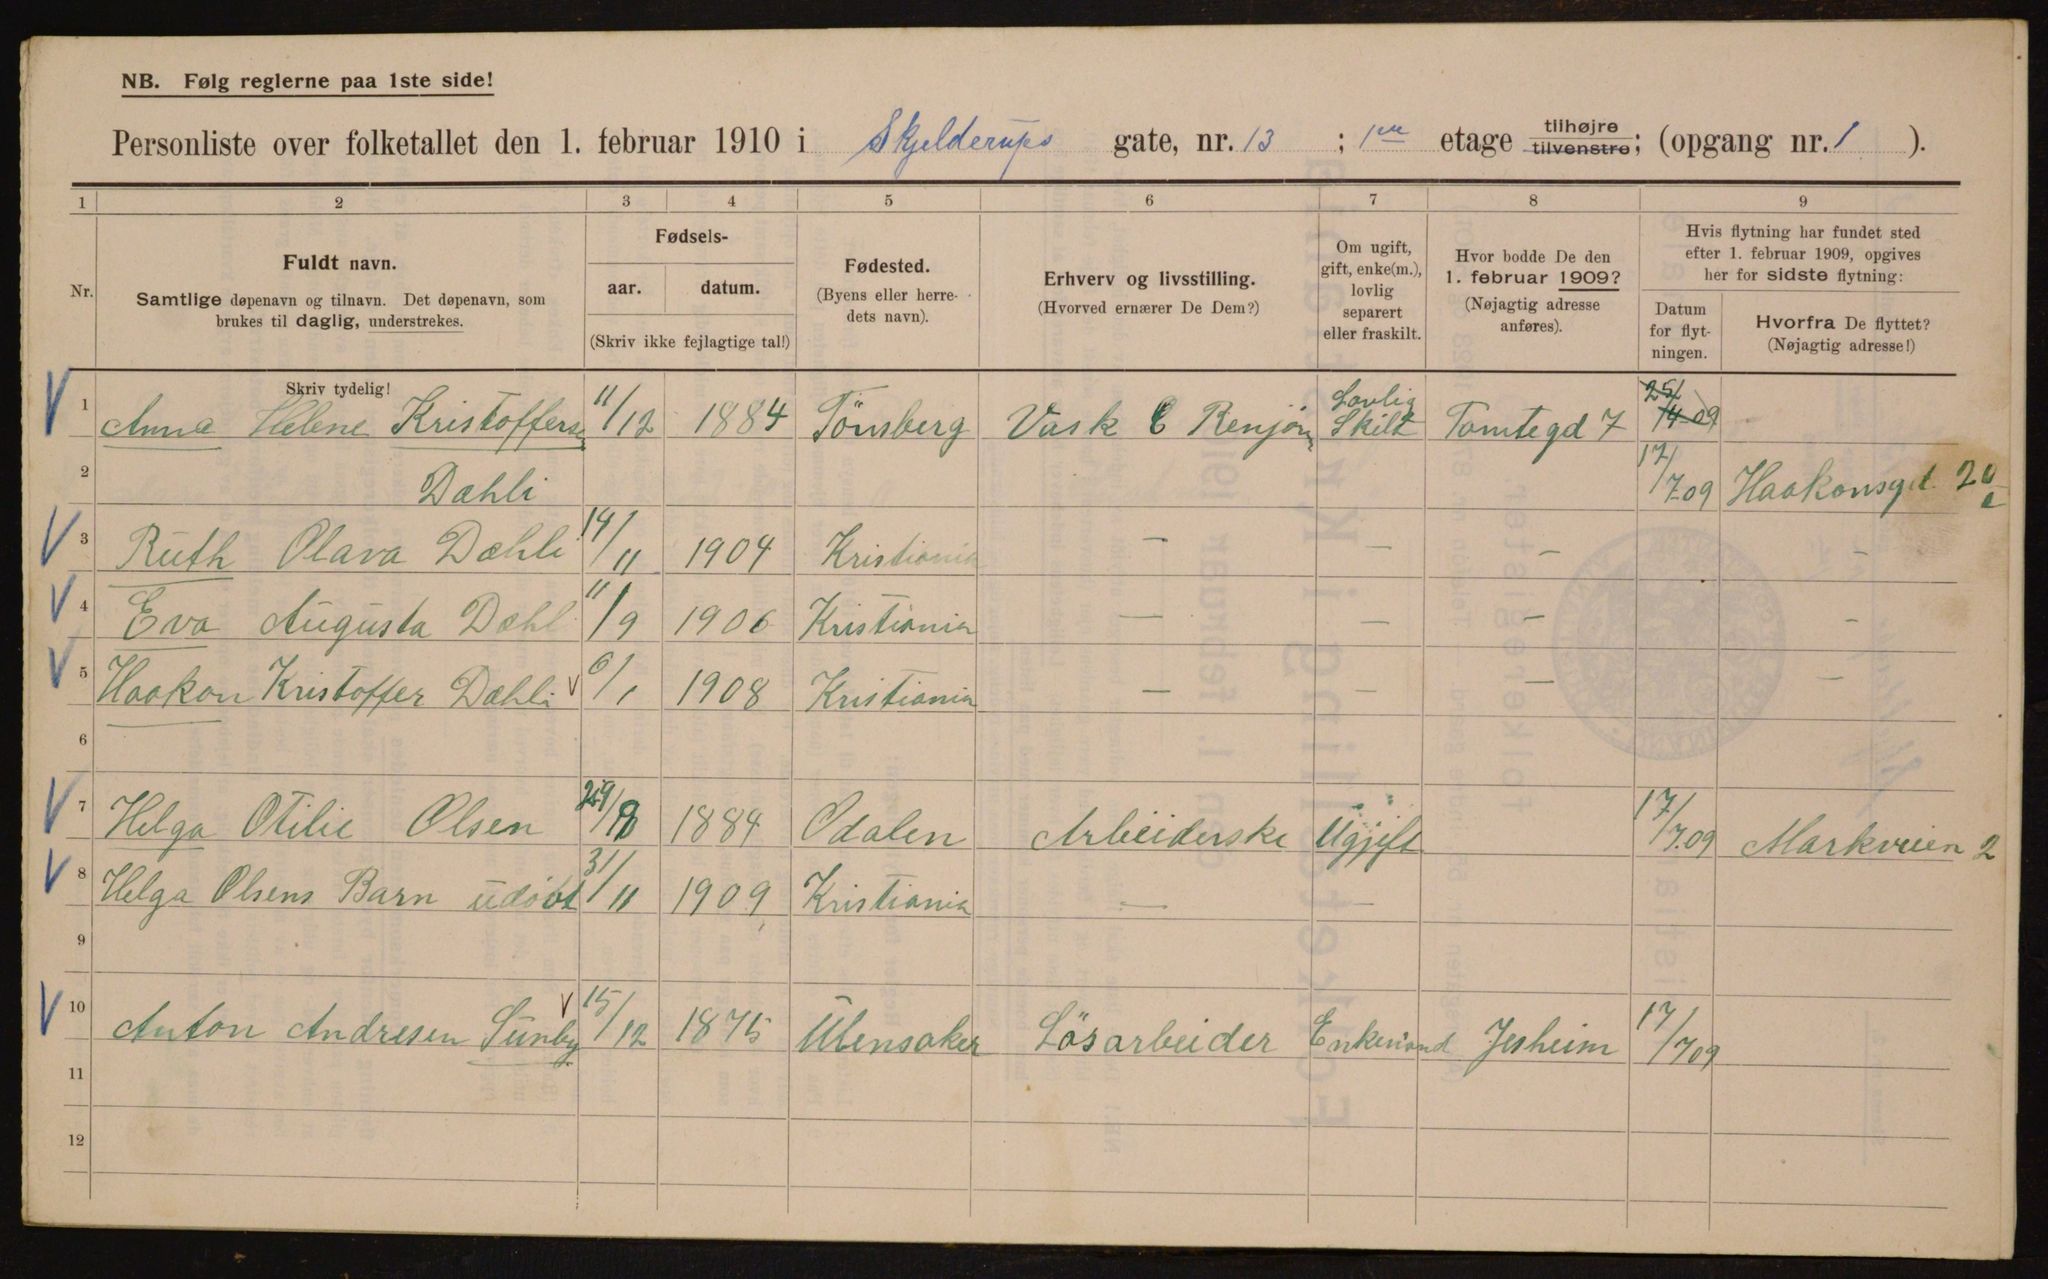 NB. Følg reglerne paa 1ste side!
Personliste over folketallet den 1. februar 1910 i Skjelderups gate, nr. 13 ; 1ste etage tilhøjre tilvenstre; (opgang nr. 1 ).
1 2 3 4 5 6 7 8 9
Nr.
Fuldt navn.
Samtlige døpenavn og tilnavn. Det døpenavn, som
brukes til daglig, understrekes.
Skriv tydelig!
Fødsels-
aar. datum.
(Skriv ikke fejlagtige tal!)
Fødested.
(Byens eller herre-
dets navn).
Erhverv og livsstilling.
(Hvorved ernærer De Dem?)
Om ugift,
gift, enke(m.),
lovlig
separert
eller fraskilt.
Hvor bodde De den
1. februar 1909?
(Nøjagtig adresse
anføres).
Hvis flytning har fundet sted
efter 1. februar 1909, opgives
her for sidste flytning:
Datum
for flyt-
ningen.
Hvorfra De flyttet?
(Nøjagtig adresse!)
1 Anna Helene Kristoffersen 11/12 1884 Tönsberg Vask & Renjör Lovlig Skilt Tomtegd 7 25/4-09
2 Dæhli 17/7.09 Haakonsgd. 20
3 Ruth Olava Dæhli 14/11 1904 Kristiania — — — —
4 Eva Augusta Dæhl 11/9 1906 Kristiania — — — —
5 Haakon Kristoffer Dæhli 6/1 1908 Kristiania — — — —
6
7 Helga Otilie Olsen 1884 Odalen Arbeiderske Ugjift 17/7.09 Markveien 2
8 Helga Olsens Barn udöbt 31/11 1909 Kristiania — —
9
10 Anton Andresen Sunby 15/12 1875 Ulensaker Lösarbeider Enkemand Jesheim 17/709
11
12